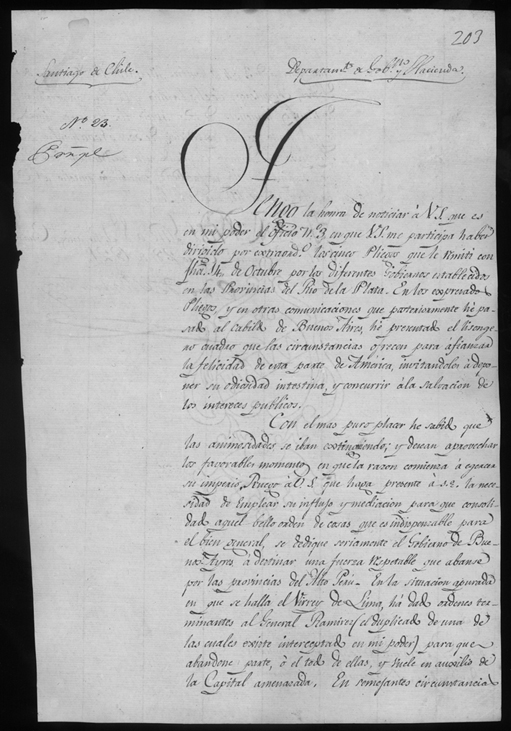 203
Santiago de Chile.
Departam.to de Gob.no y Hacienda.
N.o 23.
Tengo la honra de noticiar à V.S. que es
en mi poder el Oficio N. 3 en que V.S. me participa haber
dirigido por extraord.o los cinco Pliegos que le remiti con
fha. 14 de Octubre por los diferentes Gobiernos establecidos
en las Provincias del Rio de la Plata. En los expresados
Pliegos, y en otras comunicaciones que posteriormente hé pa-
sado al Cabildo de Buenos Ayres, he presentado el lisonge-
ro cuadro que las circunstancias ofrecen para afianzar
la felicidad de esta parte de América, invitandolos à depo-
ner su odiosidad intestina, y concurrir à la salvacion de
los intereces publicos.
Con el mas puro placer he sabido que
las animosidades se iban extinguiendo; y desean aprovechar
los favorables momentos en que la razon comienza à egercer
su imperio, Ruego à V.S. que haga presente à S.E. la nece-
sidad de emplear su influjo y mediacion para que consoli-
dado aquel bello orden de cosas que es indispensable para
el bien general, se dedique seriamente el Gobierno de Bue-
nos Ayres à destinar una fuerza respetable que abanse
por las provincias del Alto Perú. En la situacion apurada
en que se halla el Virrey de Lima, há dado ordenes ter-
minantes al General Ramirez (el duplicado de una de
las cuales existe interceptado en mi poder) para que
abandone parte, ò el todo de ellas, y vuele en auxilio de
la Capital amenasada. En semejantes circunstancias